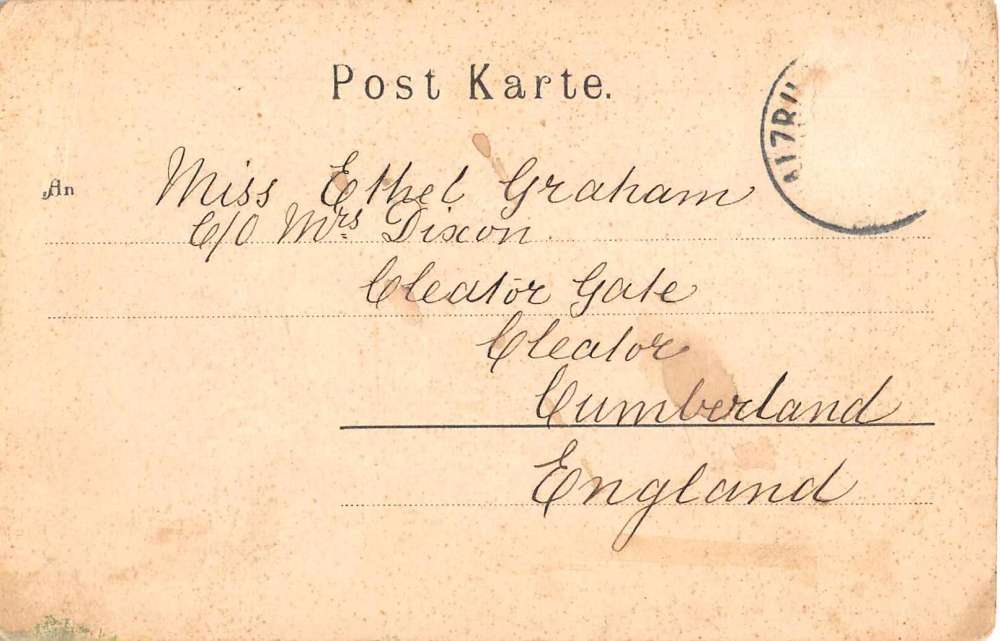 Post Karte.
An
Miss Ethel Graham
C/O Mrs Dixon
Cleator Gate
Cleator
Cumberland
England